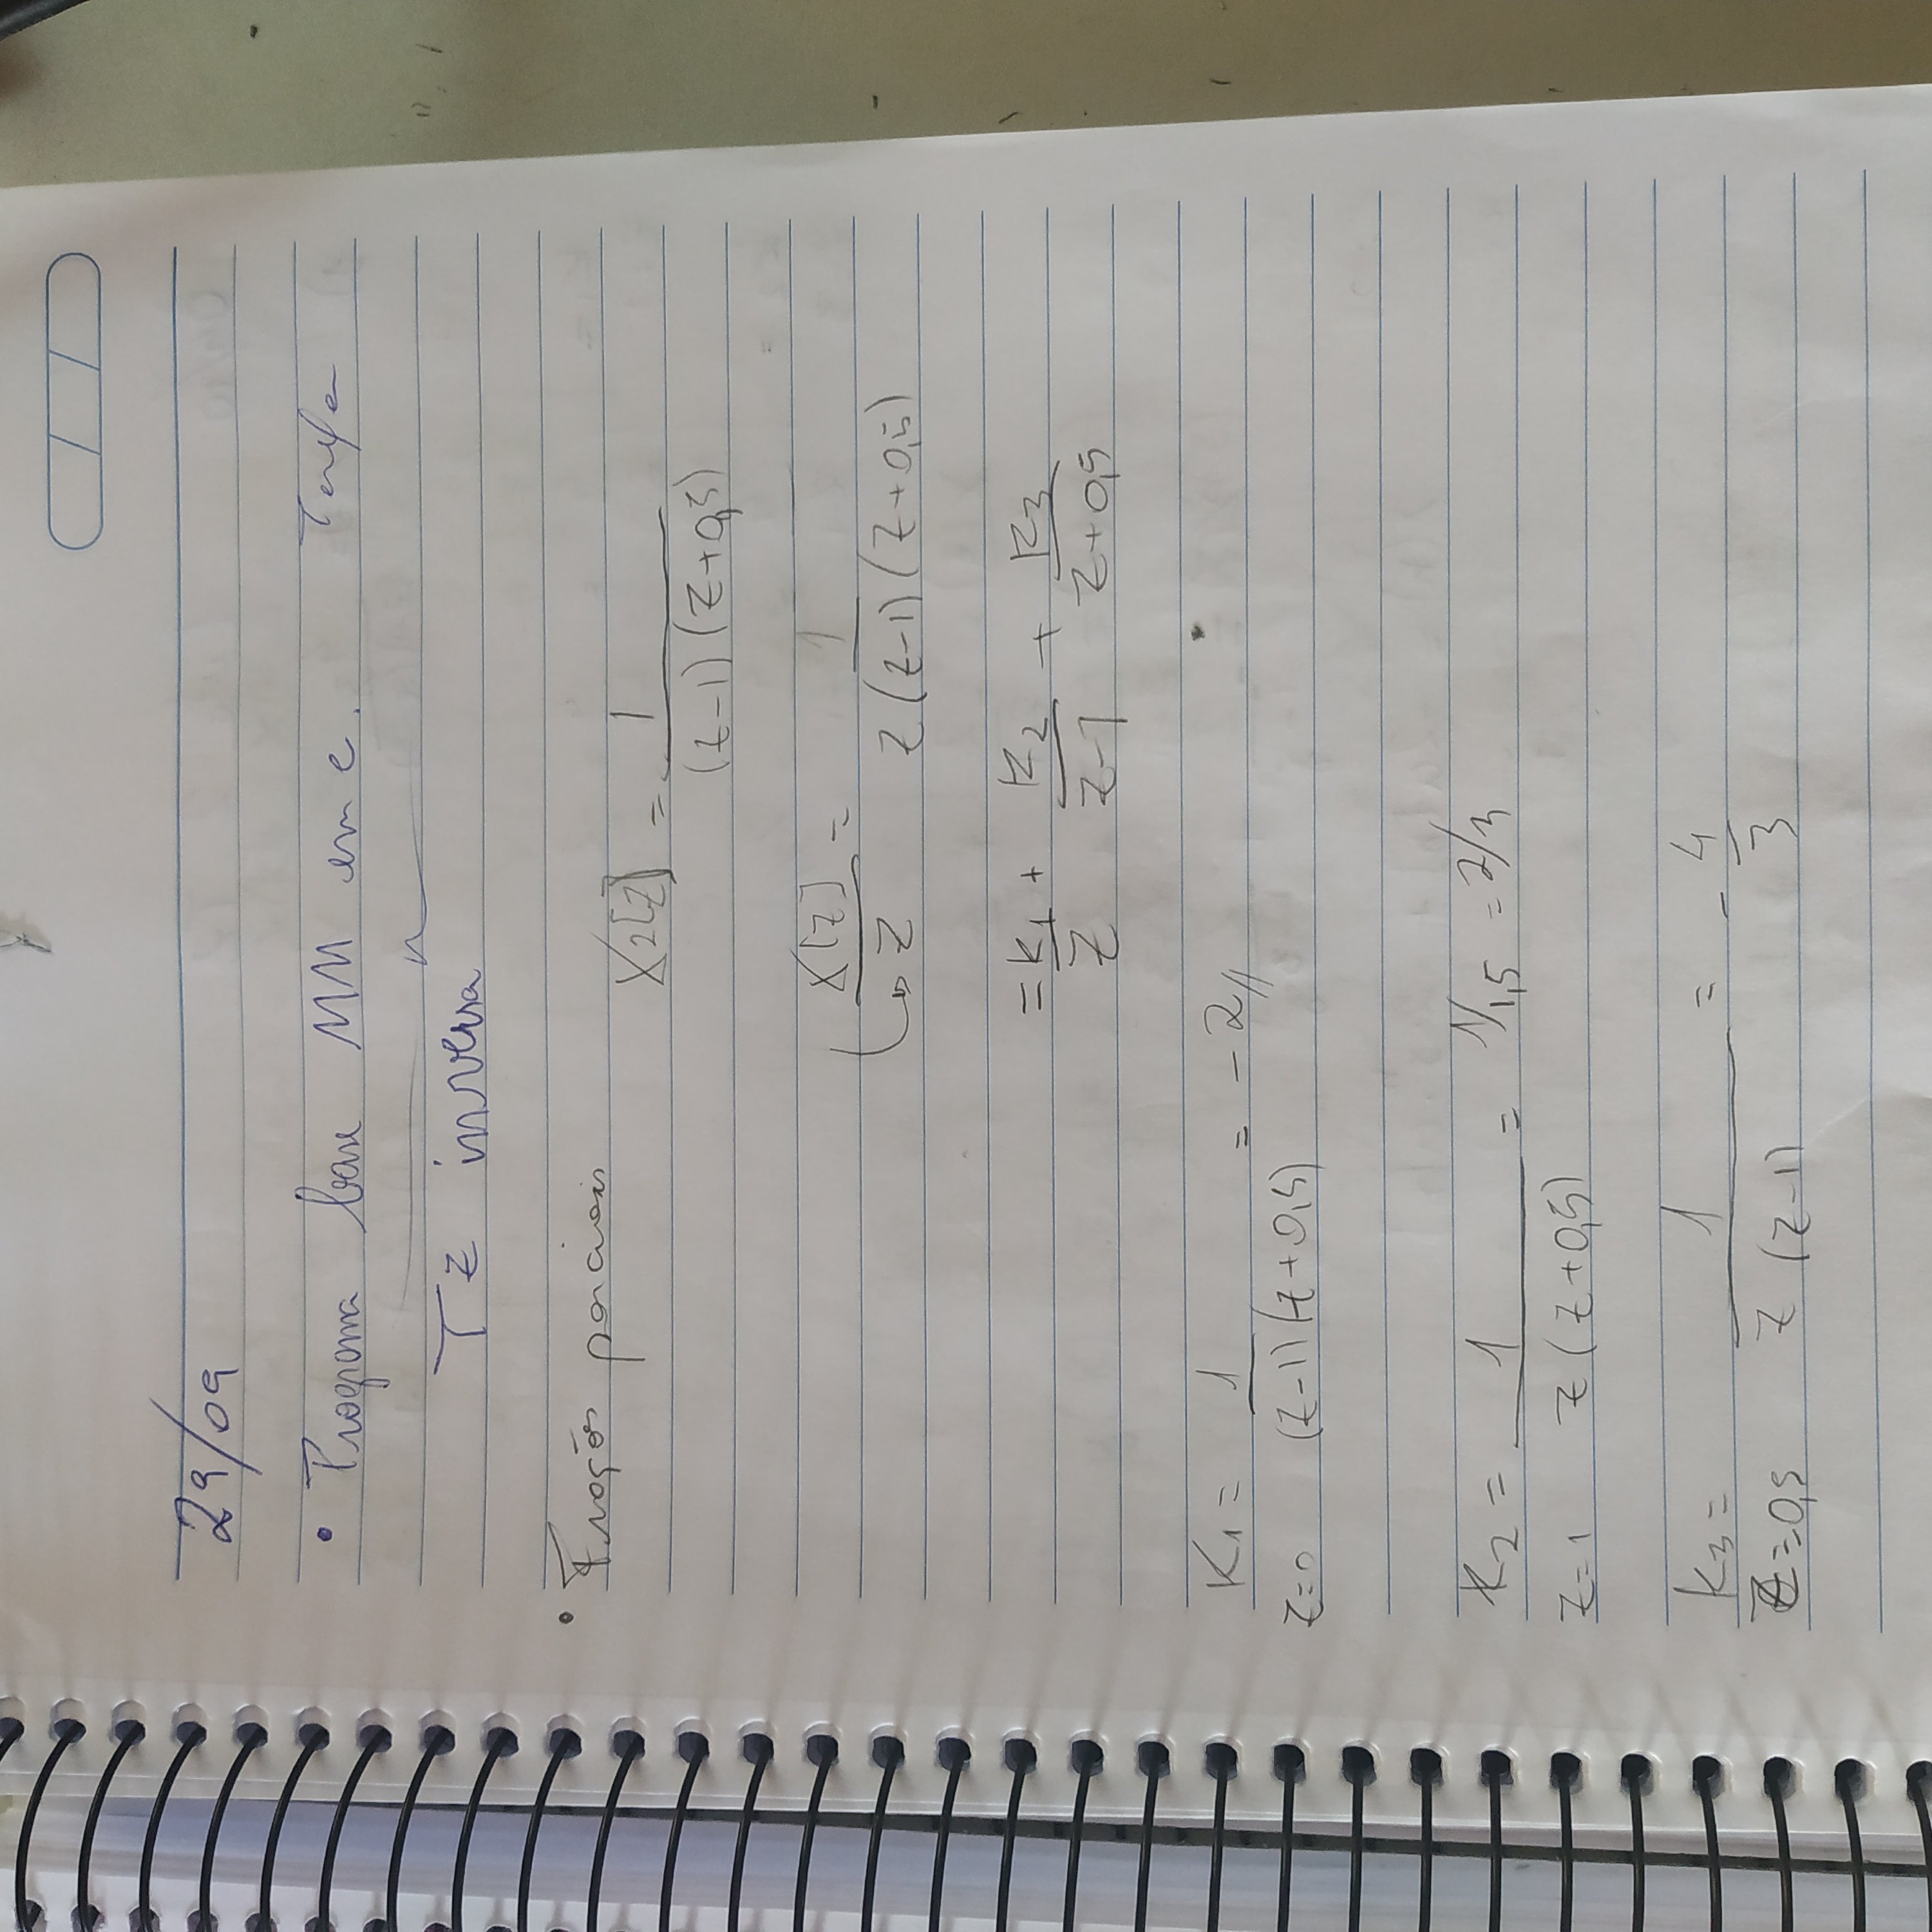 29/09
• Programa base MM em c. Tarefa
TZ inversa
• Frações parciais
X2[Z] = 1 / (z-1)(z+0,5)
X[z] / z = 1 / z(z-1)(z+0,5)
= K1/z + K2/z-1 + K3/z+0,5
K1 = 1 / (z-1)(z+0,5) = -2//
z=0
K2 = 1 / z(z+0,5) = 1/1,5 = 2/3
z=1
K3 = 1 / z(z-1) = -4/3
z=0,5